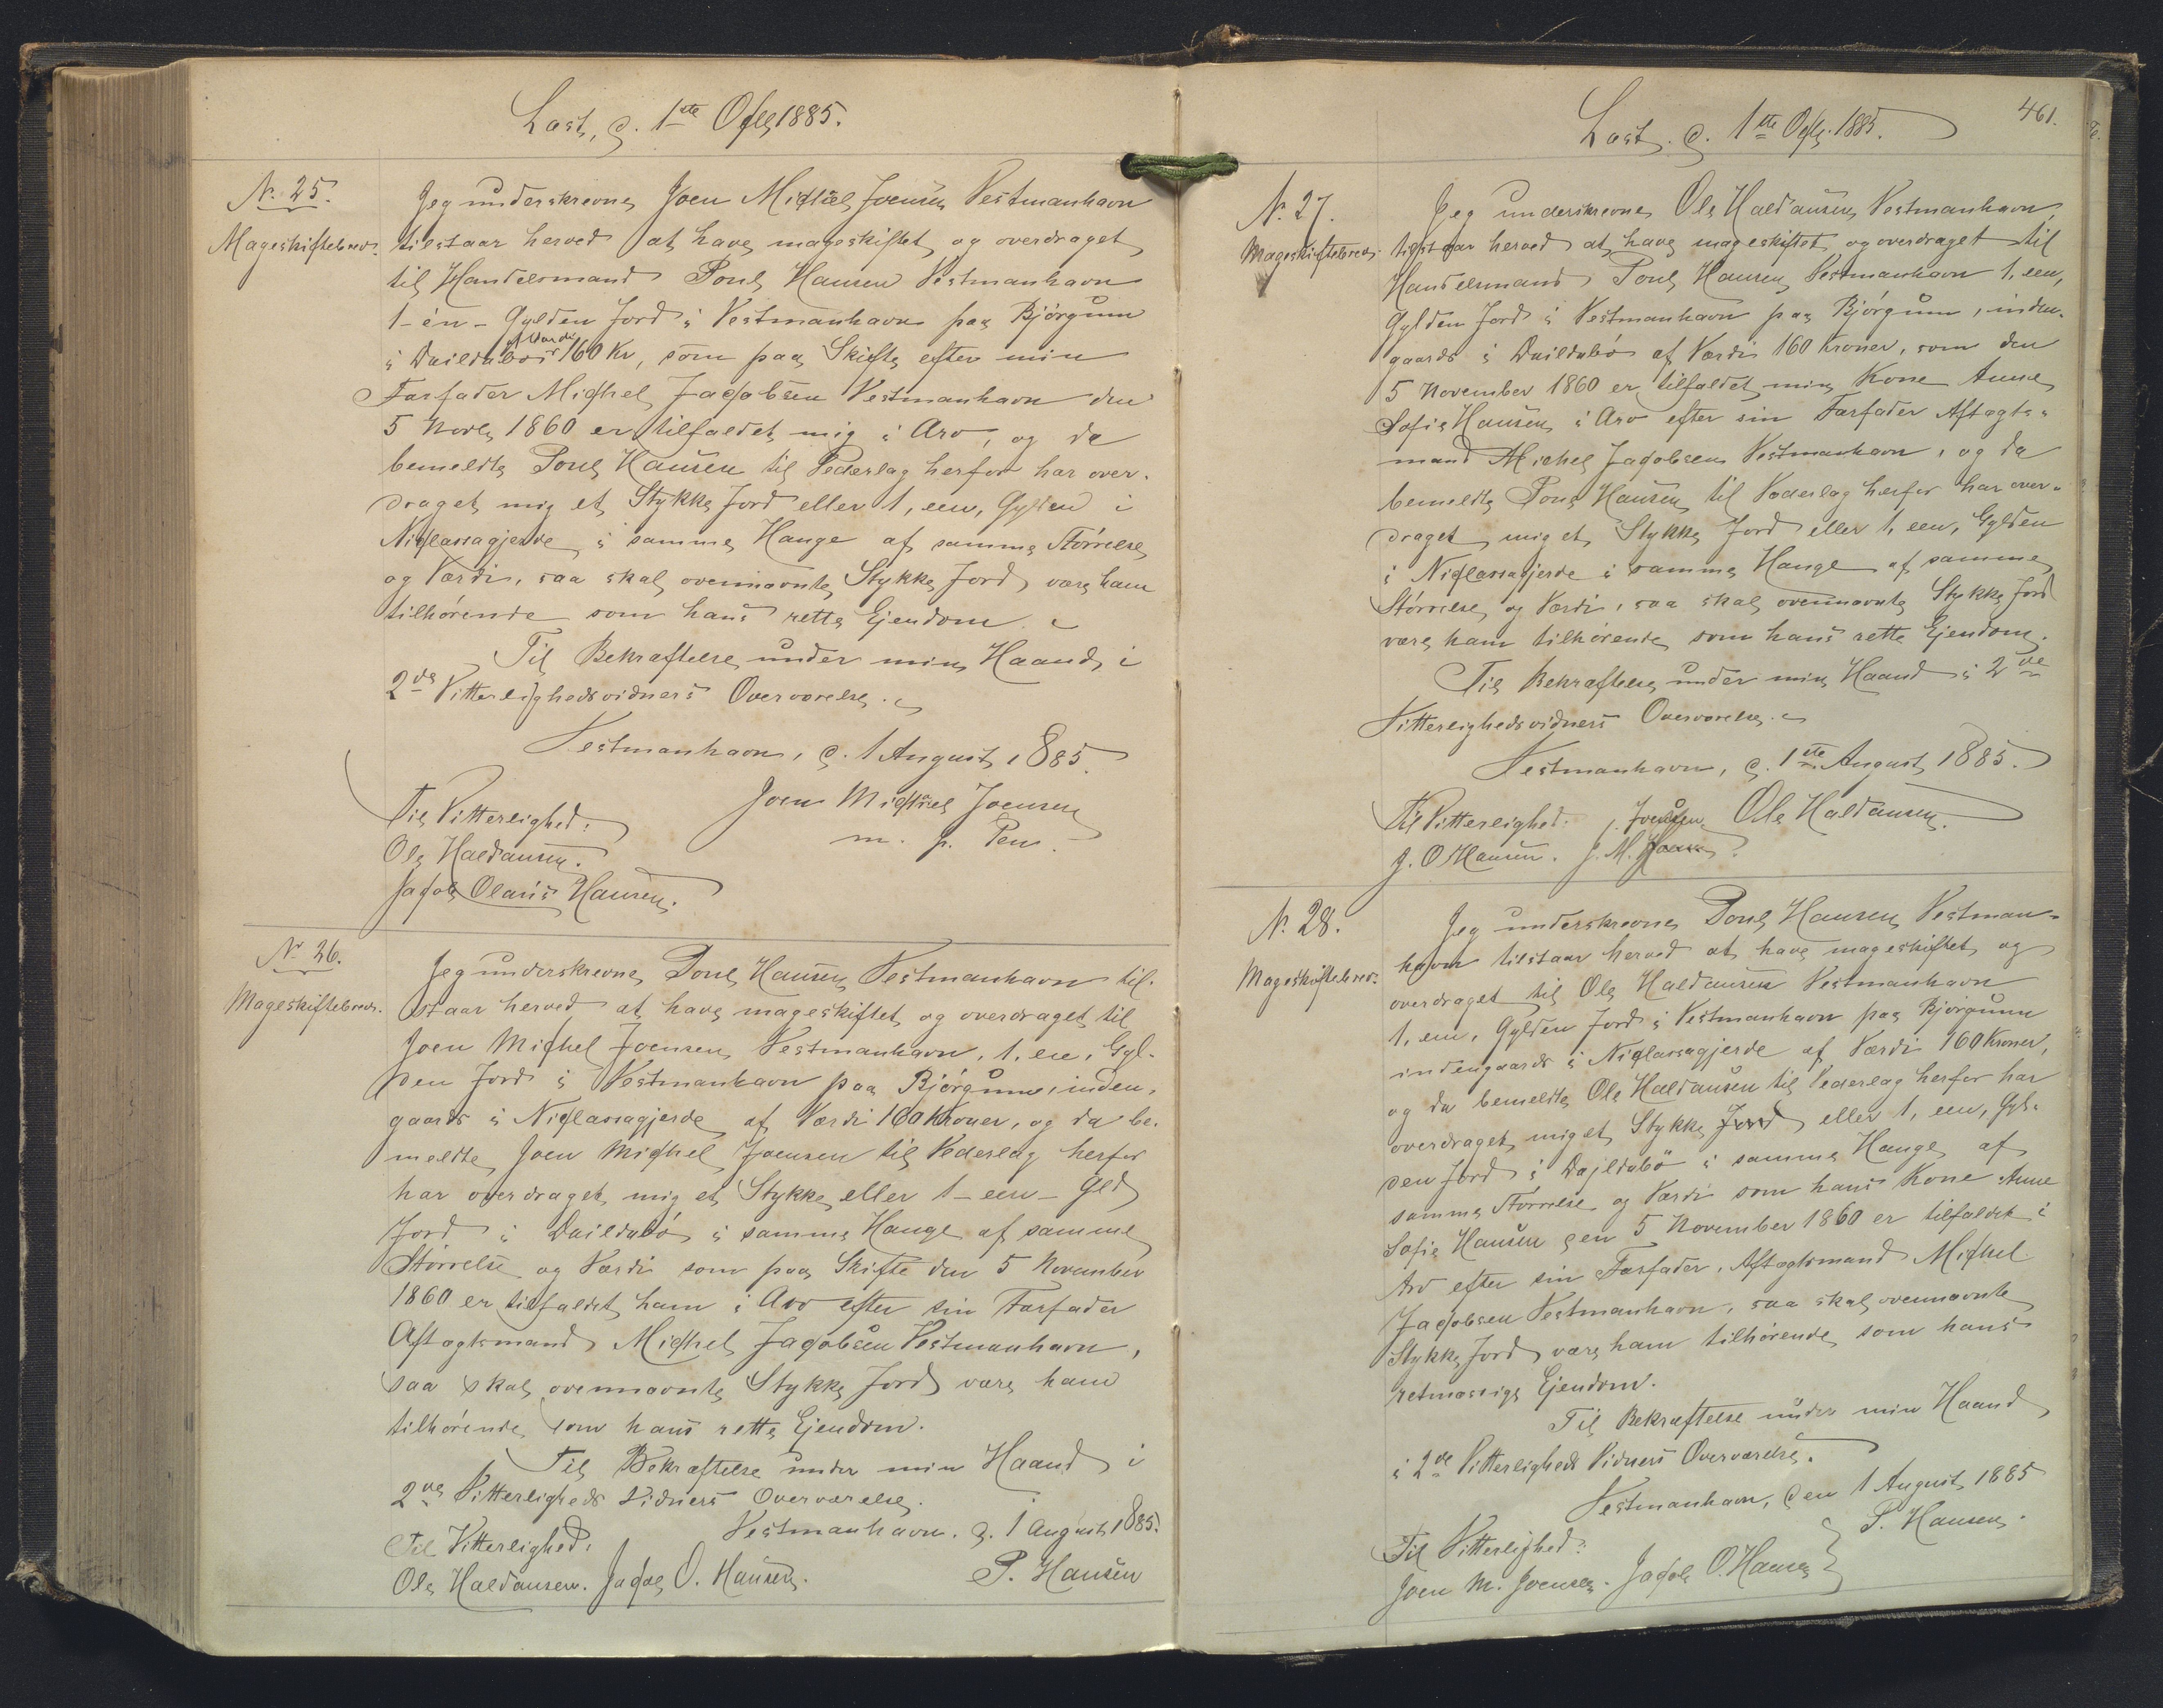 Læst, d. 1ste Octbr 1885.
Nr. 25.
Mageskiftebrev.
Jeg underskrevne Joen Michael Joensen Vestmanhavn
tilstaar herved at have mageskiftet og overdraget
til Handelsmand Poul Hansen Vestmanhavn
1 - én - Gylden Jord i Vestmanhavn paa Bjørgum
af Værdi
i Daildabø 160 Kr, som paa Skifte efter min
Farfader Michel Jacobsen Vestmanhavn den
5 Novbr 1860 er tilfaldet mig i Arv, og da
bemeldte Poul Hansen til Vederlag herfor har over-
draget mig et Stykke Jord eller 1, een, Gylden i
Niclassagjerde i samme Hauge af samme Størrelse
og Værdi, saa skal ovennævnte Stykke Jord være ham
tilhørende som hans rette Ejendom.
Til Bekræftelse under min Haand i
2de Vitterlighedsvidners Overværelse.
Vestmanhavn, d. 1 August 1885.
Til Vitterlighed:
Joen Michael Joensen
m. p. Pen.
Ole Haldansen.
Jacob Olaris Hansen.
Nr. 26.
Mageskiftebrev.
Jeg underskrevne Poul Hansen Vestmanhavn til-
staar herved at have mageskiftet og overdraget til
Joen Michel Joensen Vestmanhavn, 1, een, Gyl-
den Jord i Vestmanhavn paa Bjørgum, inden-
gaards i Niclassagjerde af Værdi 160 Kroner, og da be-
meldte Joen Michel Joensen til Vederlag herfor
har overdraget mig et Stykke eller 1 - een - Gld
Jord i Daildabø i samme Hauge af samme
Størrelse og Værdi som paa Skifte den 5 November
1860 er tilfaldet ham i Arv efter sin Farfader
Aftægtsmand Michel Jacobsen Vestmanhavn,
saa skal ovennævnte Stykke Jord være ham
tilhørende som hans rette Ejendom.
Til Bekræftelse under min Haand i
2de Vitterligheds Vidners Overværelse.
Vestmanhavn. d. 1 August 1885.
Til Vitterlighed.
Ole Haldansen. Jacob O. Hansen. P. Hansen
461.
Læst. d. 1ste Octbr. 1885.
Nr. 27.
Mageskiftebrev.
Jeg underskrevne Ole Haldansen Vestmanhavn
tilstaar herved at have mageskiftet og overdraget til
Handelsmand Poul Hansen Vestmanhavn 1, een,
Gylden Jord i Vestmanhavn paa Bjørgum, inden-
gaards i Daildabø af Værdi 160 Kroner, som den
5 November 1860 er tilfaldet min Kone Anne
Sofie Hansen i Arv efter sin Farfader Aftægts-
mand Michel Jacobsen Vestmanhavn, og da
bemeldte Poul Hansen til Vederlag herfor har over-
draget mig et Stykke Jord eller 1, een, Gylden
i Niclassagjerde i samme Hauge af samme
Størrelse og Værdi, saa skal ovennævnte Stykke Jord
være ham tilhørende som hans rette Ejendom.
Til Bekræftelse under min Haand i 2de
Vitterlighedsvidners Overværelse.
Vestmanhavn, d. 1ste August 1885.
Til Vitterlighed. Joensen Ole Haldansen.
J. O Hansen. J. M.
Nr. 28.
Mageskiftebrev.
Jeg underskrevne Poul Hansen Vestman-
havn tilstaar herved at have mageskiftet og
overdraget til Ole Haldansen Vestmanhavn
1, een, Gylden Jord i Vestmanhavn paa Bjørgum
indengaards i Niclassagjerde af Værdi 160 Kroner,
og da bemeldte Ole Haldansen til Vederlag herfor har
overdraget mig et Stykke Jord eller 1, een, Gyl-
den Jord i Dajldabö i samme Hauge af
samme Størrelse og Værdi som hans Kone Anne
Sofie Hansen den 5 November 1860 er tilfaldet i
Arv efter sin Farfader, Aftægtsmand Michel
Jacobsen Vestmanhavn, saa skal ovennævnte
Stykke Jord være ham tilhørende som hans
retmæssige Ejendom.
Til Bekræftelse under min Haand
i 2de Vitterligheds Vidners Overværelse.
Vestmanhavn, den 1 August 1885
Til Vitterlighed: P. Hansen.
Joen M. Joensen. Jacob O. Hansen